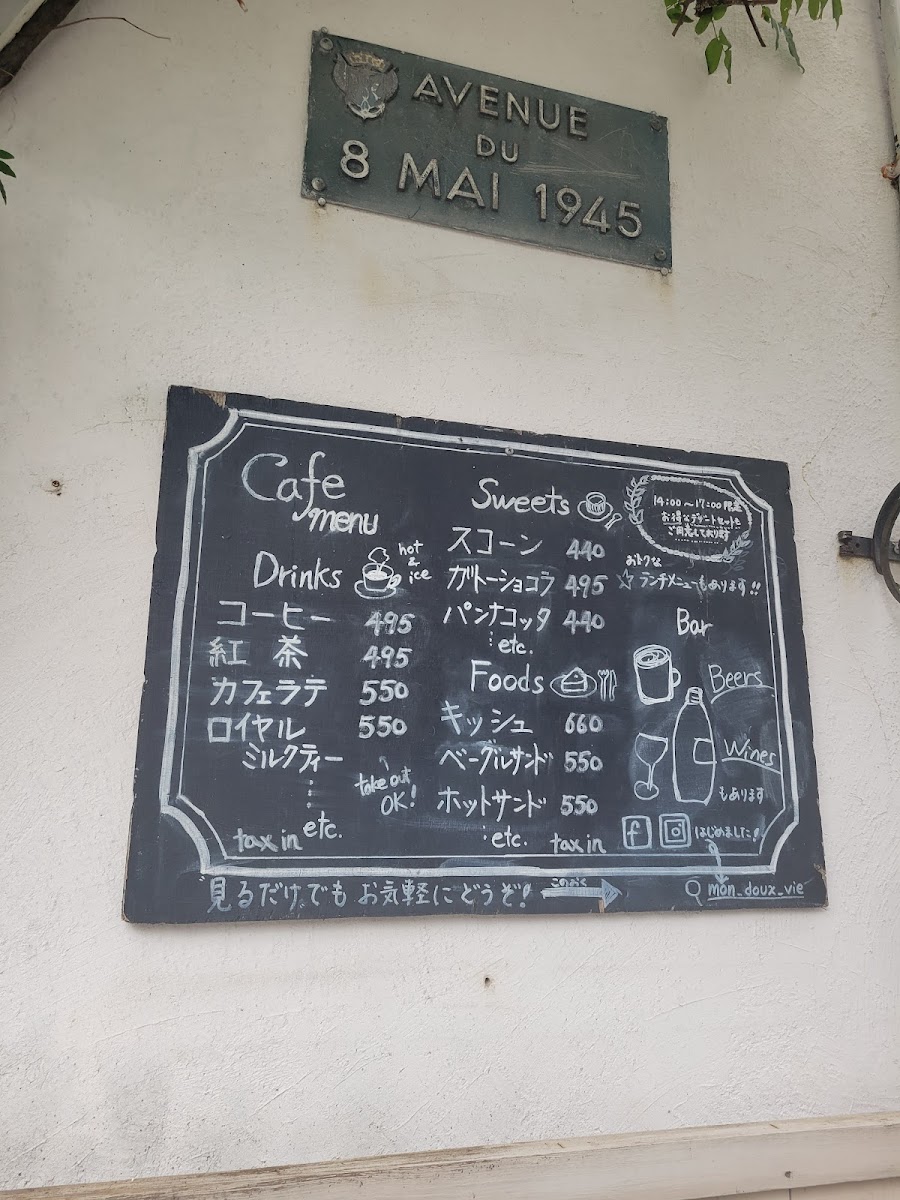 AVENUE
DU
8 MAI 1945
Cafe
menu
Drinks
hot
&
ice
コーヒー 495
紅茶 495
カフェラテ 550
ロイヤル 550
ミルクティー
take out
OK!
etc.
tax in
Sweets
スコーン 440
ガトーショコラ 495
パンナコッタ 440
etc.
Foods
キッシュ 660
ベーグルサンド 550
ホットサンド 550
etc.
tax in
14:00~17:00限定
お得なデザートセットも
ご用意しております
おトクな
☆ランチメニューもあります!!
Bar
Beers
Wines
もあります
f はじめました!
mon_doux_vie
見るだけでもお気軽にどうぞ!
このおく